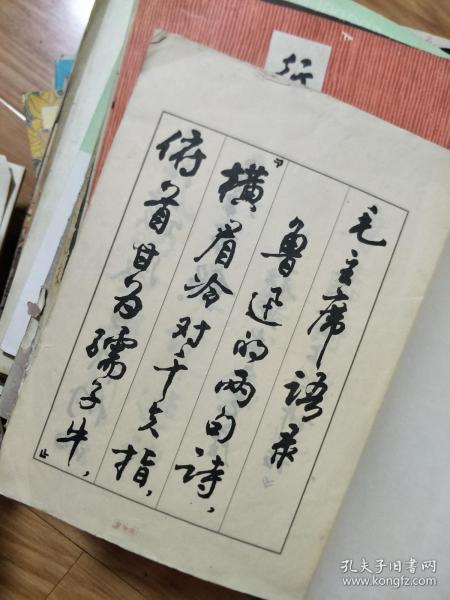 毛主席语录
鲁迅的两句诗,
横眉冷对千夫指,
俯首甘为孺子牛,
孔夫子旧书网
www.kongfz.com